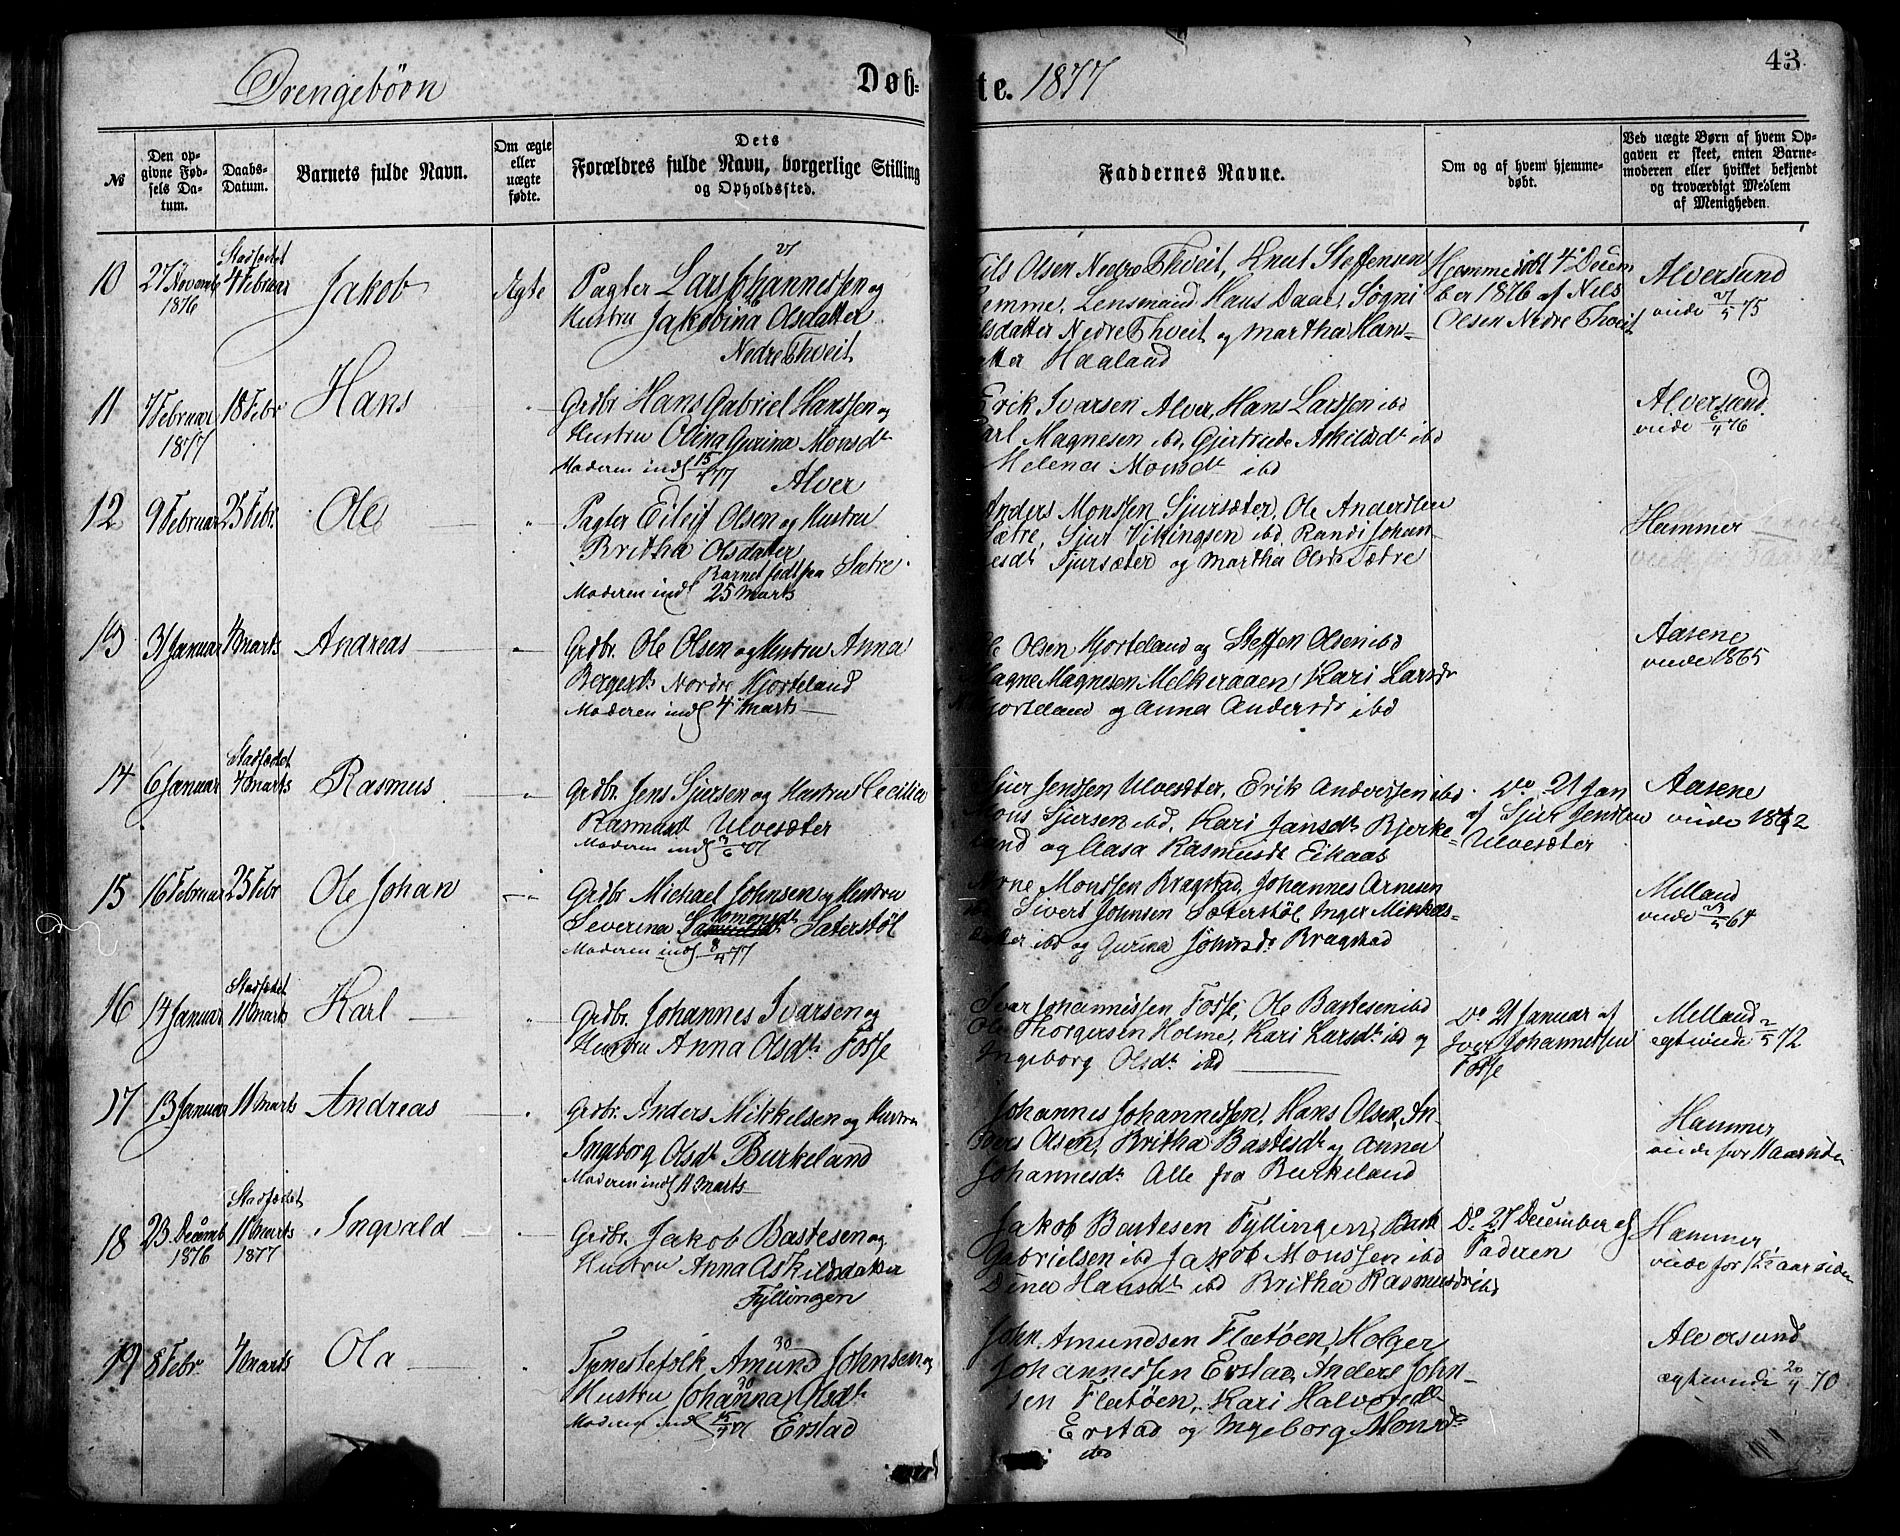 Drengebörn
Døb-
te. 1877
43
№
Den opgivne Fødsels Datum.
Daabs-Datum.
Barnets fulde Navn.
Om ægte eller uægte fødte.
Dets
Forældres fulde Navn, borgerlige Stilling
og Opholdssted.
Faddernes Navne.
Om og af hvem hjemmedøbt.
Ved uægte Børn af hvem Opgaven er skeet, enten Barnemoderen eller hvilket bekjendt og troværdigt Medlem af Menigheden.
10
27 Novemb
1876
Stadfædet
4 Februar
Jakob
Ægte
Pagter Lars Johannessen og
Hustru Jakobina Olsdatter
Nedre Thveit
Nils Olsen Nedre Thveit, Knut Steffensen
Lensmand Hans Daae, Sögni
Olsdatter Nedre Thveit og Martha Hans-
datter Haaland
Hjemmedöbt 4 Decem
ber 1876 af Nils
Olsen Nedre Thveit
Alversund
75
11
7 Februar
1877
18 Febr
Hans
Grdbr. Hans Gabriel Hanssen og
Hustru Olina Gurina Monsdt
Moderen indl 15/4 77
Alver
Erik Ivarsen Alver, Hans Larssen ibd
Karl Magnesen ibd, Gjertrude Askilsdt ibd
Helena Monsdt ibd
Alversund
6/4 76
12
9 Februar
25 Febr.
Ole
Pagter Eileif Olsen og Hustru
Britha Olsdatter
Barnet födt paa Sætre
Moderen indl 25 Marts
Anders Monssen Sjursæter, Ole Anderssen
Sætre, Sjur Vikingsen ibd, Randi Johan-
nesdt Sjursæter og Martha Olsdr Sætre
Hammer
13
31 Januar
4 Marts
Andreas
Grdbr. Ole Olsen og Hustru Anna
Bergesdt Nordre Hjorteland
Moderen indl 4 Marts
Ole Olsen Hjorteland og Steffen Olsen ibd
Magne Magnesen Melkeraaen, Kari Larsdr
Hjorteland og Anna Andersdr ibd
Aasene
1865
14
6 Januar
Stadfædet
4 Marts
Rasmus
Grdbr. Jens Sjursen og Hustru Cecilia
Rasmusdt Ulvesæter
Moderen indl
Sjur Jenssen Ulvesæter, Erik Anderssen ibd
Mons Sjursen ibd, Kari Jansdt Bjerke-
land og Aasa Rasmusdt Eikaas
Do 21 Jan
af Sjur Jenssen
Ulvesæter
Aasene
15
16 Februar
25 Febr
Ole Johan
Grdbr. Michael Johnsen og Hustru
Severina Simonsdt Sæterstöl
Moderen indl 8/4 77
Arne Monssen Bragstad, Johannes Arnesen
Sivert Johnsen Sæterstöl Inger Mikkels-
datter ibd og Gurina Johnsdr Bragstad
Melland
64
16
14 Januar
Stadfædet
11 Marts
Karl
Grdbr. Johannes Ivarsen og
Hustru Anna Olsdt Fosse
Ivar Johannessen Fosse, Ole Bastesen ibd
Ole Thorgersen Holme, Kari Larsdt ibd og
Ingeborg Olsdt ibd
Do 21 Januar af
Iver Johannessen
Fosse
Melland
72
17
13 Januar
11 Marts
Andreas
Grdbr. Anders Mikkelsen og Hustru
Ingeborg Olsdt Burkeland
Moderen indl 11 Marts
Johannes Johannessen, Hans Olsen, An-
ders Olsen, Britha Bastesdt og Anna
Johannesdt Alle fra Burkeland
Hammer
18
23 Decemb
1876
Stadfædet
11 Marts
1877
Ingvald
Grdbr. Jakob Bastesen og
Hustru Anna Askildsdatter
Fyllingen
Jakob Bastesen Fyllingen, Bast
Gabrielsen ibd Jakob Monssen ibd
Dina Hansdt ibd Britha Rasmusdr ibd
Do 27 December af
Faderen
Hammer
19
8 Febr.
4 Marts
Ola
Tjenestefolk Amund Johnsen og
Hustru Johanna Olsdt
Moderen indl
Erstad
John Amundsen Fletöen, Holger
Johannessen Erstad, Anders John-
sen Fletöen, Kari Halvorsdt
Erstad og Ingeborg Monsdr
ibd
Alversund
70